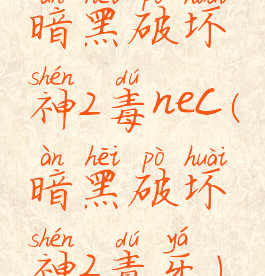 àn hēi pò huài
暗黑破坏
shén dú
神2毒nec(
àn hēi pò huài
暗黑破坏
shén dú yá
神2毒牙)